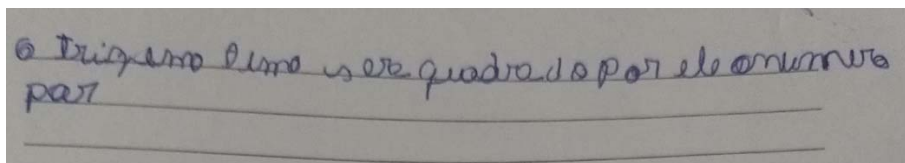 o Trigezimo Pimo sera quadrado por ele o numero
par